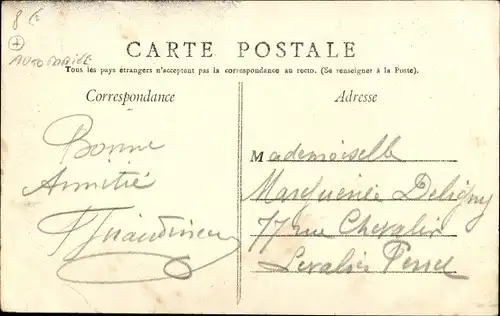 8 €
AUTOMOBILE
CARTE POSTALE
Tous les pays étrangers n'acceptent pas la correspondance au recto. (Se renseigner à la Poste).
Correspondance
Adresse
Bonne
Amitié
Mademoiselle
Marguerite Deligny
77 rue Chevalier
Levallois Perret